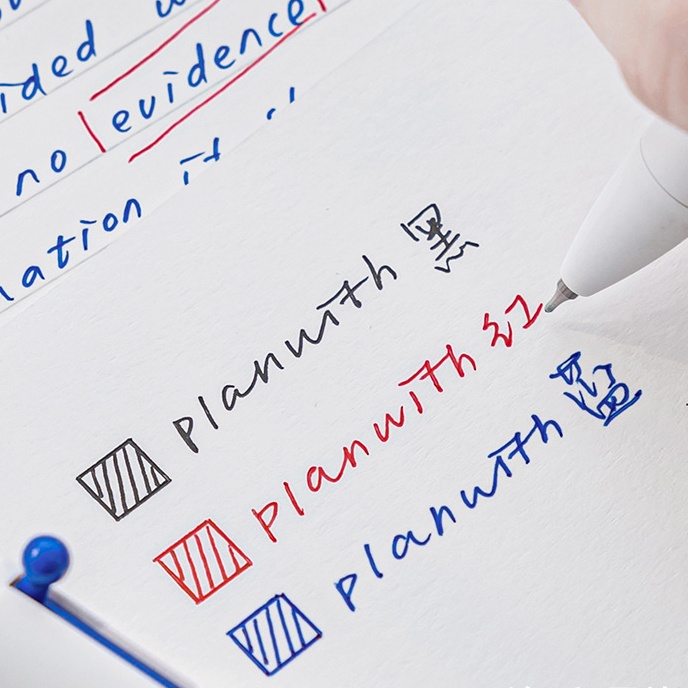 ided
no evidence
lation it
planwith 黑
planwith 红
planwith 蓝